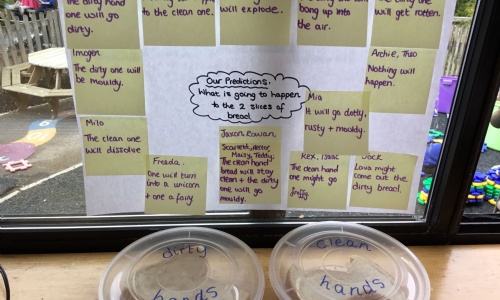 the dirty hand
one will go
dirty.
to the clean one.
will explode.
up into
the air.
will get rotten.
Imogen
The dirty one will
be mouldy.
Our Predictions:
What is going to happen
to the 2 slices of
bread
Archie, Theo
Nothing will
happen.
Mia
It will go dotty,
rusty + mouldy.
Milo
The clean one
will dissolve
Freda.
One will turn
into a unicorn
+ one a fairy
Jaxon, Rowan,
Scarlett, Hector,
Maisy, Teddy:
The clean hand
bread will stay
clean + the dirty
one will go
mouldy.
Rex, Isaac
The clean hand
one might go
Jock
Lava might
come out the
dirty bread.
dirty
hands
clean
hands